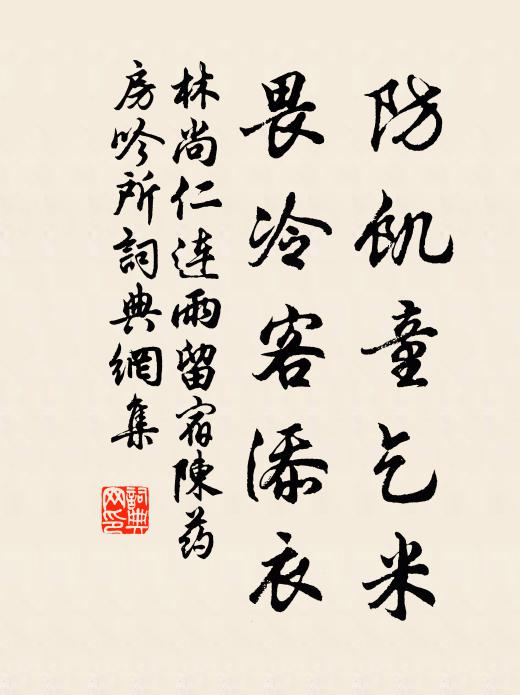 防飢童乞米
畏冷客添衣
林尚仁連雨留宿陳药
房吟所詞典網集
詞典網印